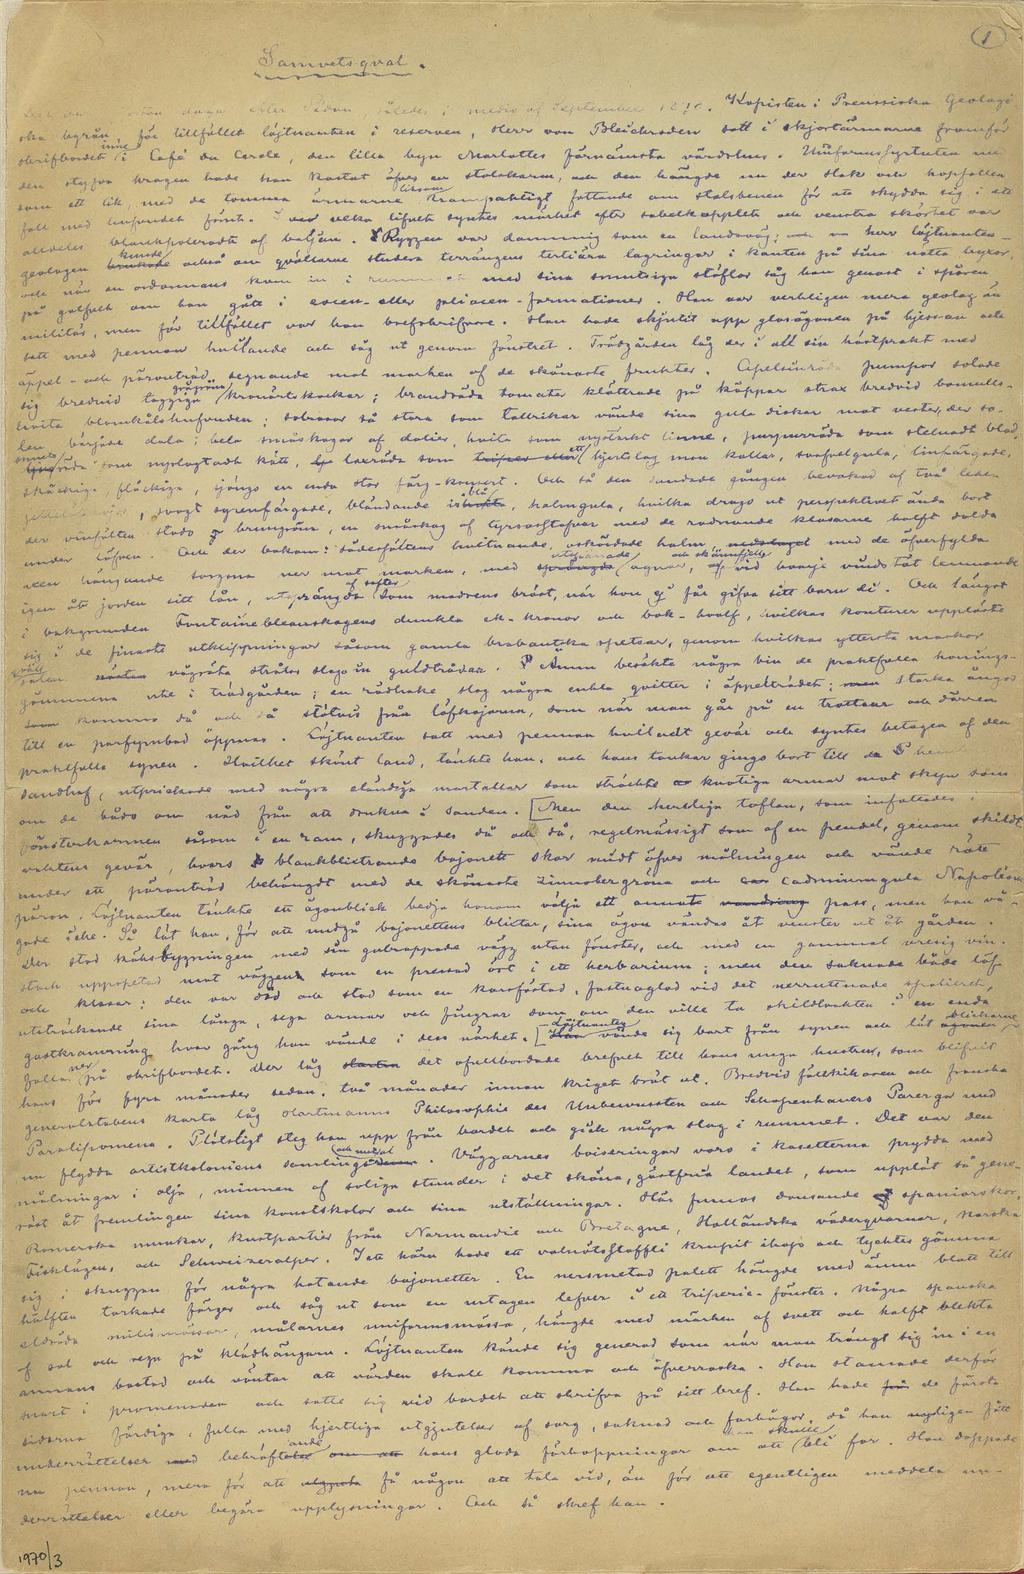 1
Samvetsqval.
dagar efter Sedan, således i medio af September 1870. Kopisten i Preussiska Geologi-
ska byrån, för tillfället löjtnanten i reserven, Herr von Bleichroden satt i skjortärmarne framför
skrifbordet inne i Café du Cercle, den lilla byn Marlottes förnämsta värdshus. Uniformssyrtuten med
den styfva kragen hade han kastat öfver en stolskarm, och den hängde nu der slak och hopfallen
som ett lik, med de tomma ärmarne liksom krampaktigt fattande om stolsbenen för att skydda sig i ett
fall med hufvudet förut. lifvet syntes märket efter sabelkopplet och venstra skörtet var
alldeles blankpoleradt af baljan. Ryggen var dammig som en landsväg; herr löjtnanten-
geologen kunde också om qvällarne studera terrängens tertiära lagringar i kanten på sina nötta byxor,
och när en ordonnans kom in i rummet med sina smutsiga stöflor såg han genast i spåren
på golfvet om han gått i eocen- eller pliocen-formationer. Han var verkligen mera geolog än
militär, men för tillfället var han brefskrifvare. Han hade skjutit upp glasögonen på hjessan och
satt med pennan hvilande och såg ut genom fönstret. Trädgården låg der i all sin höstprakt med
äppel- och päronträd segnande mot marken af de skönaste frukter. Apelsinröda pumpor solade
sig bredvid taggiga grågröna kronärtskockor; brandröda tomater klättrade på käppar strax bredvid bomulls-
hvita blomkålshufvuden; solrosor så stora som tallrikar vände sina gula diskar mot vester, der so-
len började dala; hela småskogar af dalier, hvita som nystärkt linne, purpurröda som stelnadt blod,
smuts röda som nyslagtadt kött, laxröda som trifses eller hjertslag man kallar, svafvelgula, linfärgade,
skäckiga, fläckiga, sjöngo en enda stor färg-konsert. Och så den sandade gången bevakad af två leder
, svagt syrenfärgade, bländande isblå, halmgula, hvilka drogo ut perspektivet ända bort
der vinfälten stodo i brungrön, en småskog af tyrsosstafvar med de rodnande klasarne halft dolda
under löfven. Och der bakom: sädesfältens hvitnande, oskördade halm, med de öfverfyllda
axen hängande sorgsna ner mot marken, med utspärrade agnar, och skärmfjäll vid hvarje vindstöt lemnande
igen åt jorden sitt lån, utsprängda af safter som modrens bröst, när hon ej får gifva sitt barn di. Och längst
i bakgrunden Fontainebleauskogens dunkla ek-kronor och bok-hvalf, hvilkas konturer upplöste
sig i de finaste utklippningar såsom gamla brabantska spetsar, genom hvilkas yttersta maskor
solens vågräta strålar slogo in guldtrådar. Ännu besökte några bin de praktfulla honings-
gömmena ute i trädgården; en rödhake slog några enkla qvitter i äppelträdet; starka ångor
kommo då och då stötvis från löfkojorna, som när man går på en trottoar och dörren
till en parfymbod öppnas. Löjtnanten satt med pennan hvilande gevär och syntes betagen af den
praktfulla synen. Hvilket skönt land, tänkte han, och hans tankar gingo bort till
sandhaf, utprickade med några eländiga martallar som sträckte knotiga armar mot skyn som
om de bådo om nåd från att drunkna i sanden. [Men den herrliga taflan, som infattades
fönsterkarmen såsom i en ram, skuggades då och då, regelmässigt som af en pendel, genom skild-
vaktens gevär, hvars blankblixtrande bajonett skar midt öfver målningen och vände rätt
under ett päronträd behängdt med de skönaste zinnobergröna och cadmiumgula Napoleons-
päron. Löjtnanten tänkte ett ögonblick bedja honom välja ett annat pass, men han vå-
gade icke. Så lät han, för att undgå bajonettens blixtar, sina ögon vandra åt venster ut åt gården.
Der stod köksbyggningen med sin gulrappade vägg utan fönster, och med en gammal vresig vin-
stock uppspetad mot väggen som en pressad ört i ett herbarium; men den saknade både löf
och klasar; den var död och stod som en korsfästad, fastnaglad vid det nerruttnade spalieret,
utsträckande sina långa, sega armar och fingrar som om den ville ta skildvakten i en enda
gastkramning hvar gång han vände i dess närhet. [Löjtnanten vände sig bort från synen och lät blickarne
falla ner på skrifbordet. Der låg det ofullbordade brefvet till hans unga hustru, som blifvit
hans för fyra månader sedan, två månader innan kriget bröt ut. Bredvid fältkikaren och franska
generalstabens karta låg Hartmanns Philosophie des Unbewussten och Schopenhauers Parerga und
Paralipomena. Plötsligt steg han upp från bordet och gick några slag i rummet. Det var den
nu flydda artistkoloniens samlings och matsal. Väggarnes boiseringar voro i kasetterna prydda med
målningar i olja, minnen af soliga stunder i det sköna, gästfria landet, som upplät så gene-
röst åt främlingen sina konstskolor och sina utställningar. Här funnos dansande spaniorskor,
Romerska munkar, kustpartier från Normandie och Bretagne, Holländska väderqvarnar, Norska
fisklägen, och Schweizeralper. I ett hörn hade ett valnötsstaffli krupit ihop och tycktes gömma
sig i skuggan för några hotande bajonetter. En nersmetad palett hängde med ännu blott till
hälften torkade färger och såg ut som en urtagen lefver i ett triperie-fönster. Några spanska
eldröda milismössor, målarnes uniformsmössa, hängde med märken af svett och halft blekta
af sol och regn på klädhängarn. Löjtnanten kände sig generad som när man trängt sig in i en
annans bostad och väntar att värden skall komma och öfverraska. Han stannade derför
snart i promenaden och satte sig vid bordet att skrifva på sitt bref. Han hade de första
sidorna färdiga, fulla med hjertliga utgjutelser af sorg, saknad och farhågor, då han nyligen fått
underrättelser bekräftande hans glada förhoppningar om att han skulle bli far. Han doppade
nu pennan, mera för att få någon att tala vid, än för att egentligen meddela un-
derrättelser eller begära upplysningar. Och så skref han.
1970/3